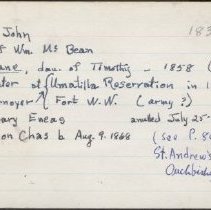 John 183
Wm. Mc Bean
ane, dau. of Timothy - 1858 (
ter at Umatilla Reservation in 1
noyer Fort W.W. (army?)
ary Eneas July 25-
on Chas b Aug. 9. 1868 (see P. 8
St. Andrew's